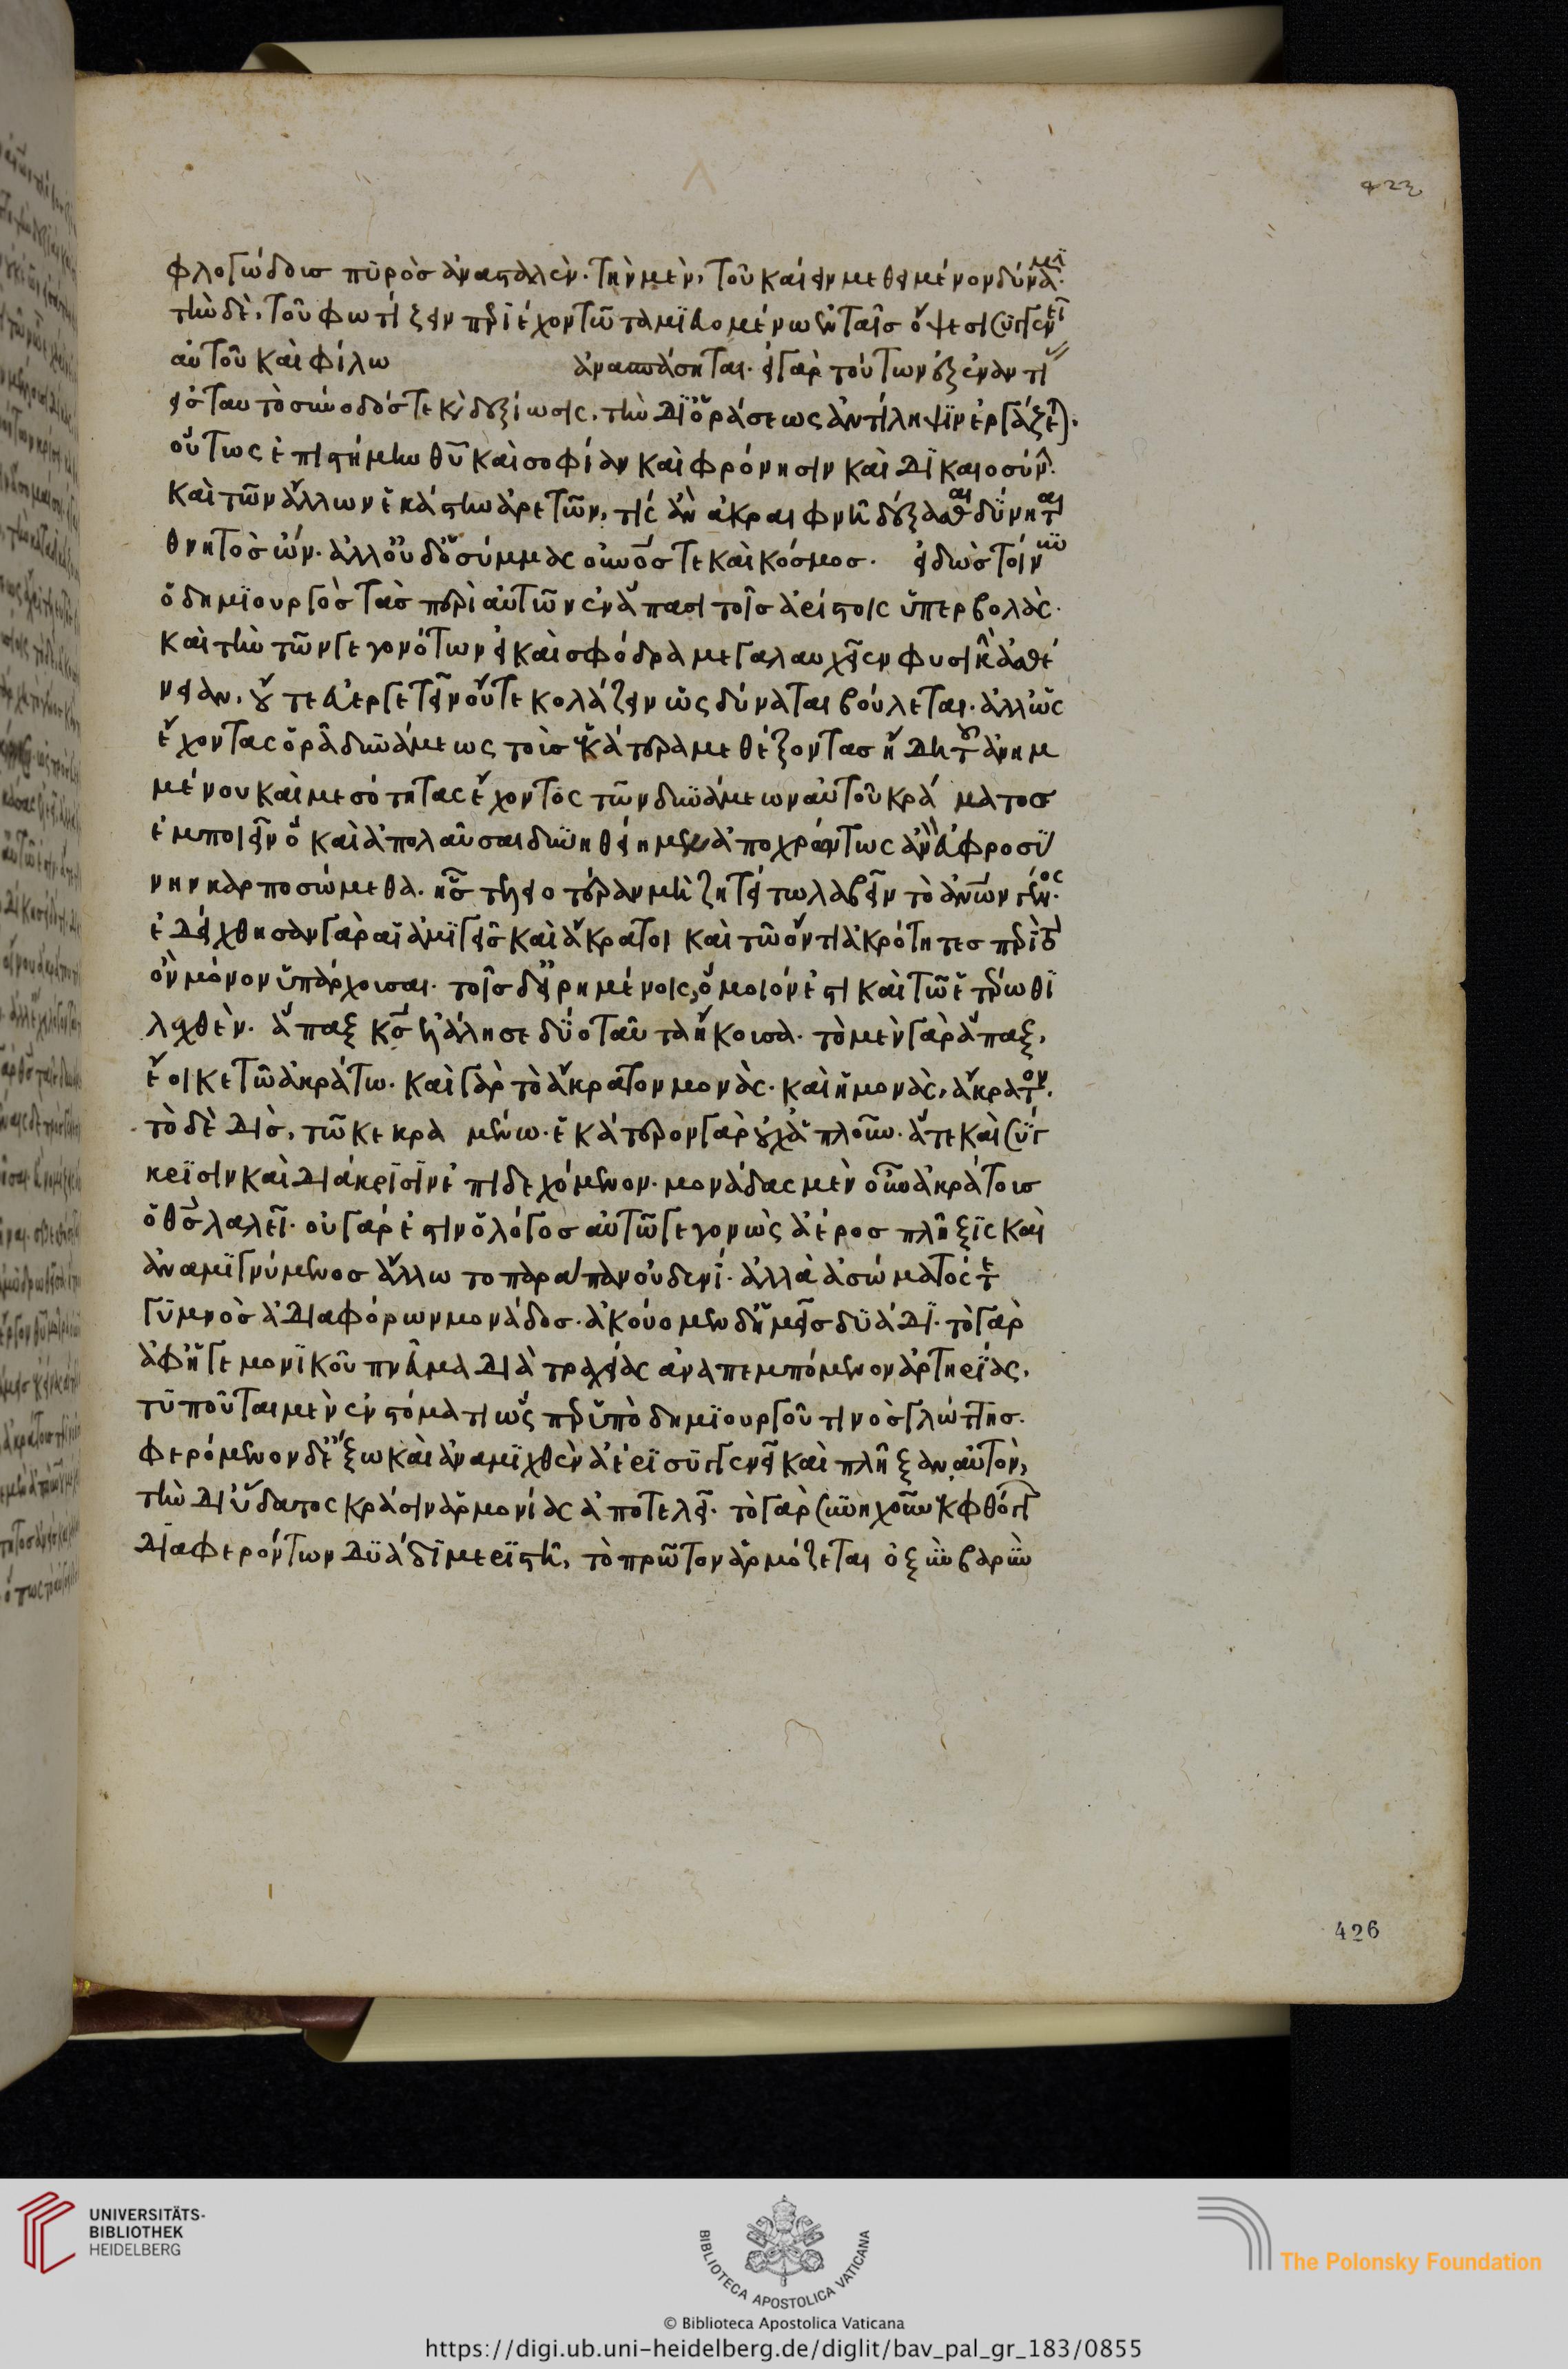 φλογώδους πυρὸς ἀναστάλεν· τὴν μὲν, τοῦ καίειν μεθειμένον δύναμϊ·
τὴν δὲ, τοῦ φωτίζειν περϊέχον τῶ ταμϊευομένω ἐν ταῖς ὄψεσι συγγενεῖ
αὐτοῦ καὶ φίλω ἀνασπάσηται· εἰ γὰρ τούτων ἐξεναντί
εἰς ταυτὸ σύνοδός τε καὶ δεξίωσις, τὴν δϊ ὁράσεως ἀντίληψϊν ἐργάζεται·
οὕτως ἐπιστήμην θεοῦ καὶ σοφίαν καὶ φρόνησιν καὶ δϊκαιοσύνην·
καὶ τῶν ἄλλων ἑκάστην ἀρετῶν, τίς ἂν ἀκραιφνῆ δέξασθαι δύνηται
θνητὸς ὤν· ἀλλ' οὐδ' ὁ σύμπας οὐρανός τε καὶ κόσμος· εἰδὼς τοίνυν
ὁ δημϊουργὸς τὰς περὶ αὐτῶν ἐν ἅπασι τοῖς ἀρίστοις ὑπερβολὰς·
καὶ τὴν τῶν γεγονότων εἰ καὶ σφόδρα μεγαλαυχεῖεν φυσικὴ ἀσθέ
νειαν, οὔτε εὐεργετεῖν οὔτε κολάζειν ὡς δύναται βούλεται· ἀλλ' ὡς
ἔχοντας ὁρᾶ δυνάμεως τοὺς ἑκάτερα μεθέξοντας ἢ δὴ τοῦ ἀνημ
μένου καὶ μεσότητας ἔχοντος τῶν δυνάμεων αὐτοῦ κρά ματος
ἐμποιεῖν ὃ καὶ ἀπολαῦσαι δυνηθείημεν ἀποχράντως ἂν εὐφροσϋ
νην καρποσώμεθα· ἧς τελειοτέραν μὴ ζητείτω λαβεῖν τὸ ἀνθρώπων γένος·
ἐδείχθησαν γὰρ αἱ ἀμϊγεῖς καὶ ἄκρατοι καὶ τῶ ὄντι ἀκρότητες περὶ τὸ
ὂν μόνον ὑπάρχουσαι· τοῖς δ' εἰρημένοις, ὅμοιόν ἐστι καὶ τῶ ἑτέρωθϊ
λεχθὲν· ἅπαξ κύριος ἐλάλησε δύο ταῦτα ἤκουσα· τὸ μὲν γὰρ ἅπαξ,
ἔοικε τῶ ἀκράτω· καὶ γὰρ τὸ ἄκρατον μονὰς· καὶ ἡ μονὰς, ἄκρατον·
τὸ δὲ δὶς, τῶ κεκρα μένω· ἑκάτερον γὰρ οὐχ ἁπλοῦν· ἅτε καὶ σύγ
κρϊσιν καὶ διάκρϊσϊν ἐπιδεχόμενον· μονάδας μὲν οὖν ἀκράτους
ὁ θεὸς λαλεῖ· οὐ γάρ ἐστιν ὁ λόγος αὐτῶ γεγονὼς ἀέρος πλῆξϊς καὶ
ἀναμϊγνύμενος ἄλλω τοπαράπαν οὐδενί· ἀλλὰ ἀσώματός τε
γϋμνὸς ἀδιαφόρων μονάδος· ἀκούομεν δ' ἡμεῖς δϋάδϊ· τὸ γὰρ
ἀφ' ἡγεμονϊκοῦ πνεῦμα διὰ τραχείας ἀναπεμπόμενον ἀρτηρϊας,
τϋποῦται μὲν ἐν στόματι ὡς περ ὑπὸ δημϊουργοῦ τινὸς γλώττης·
φερόμενον δὲ ἔξω καὶ ἀναμϊχθὲν ἀέρϊ συγγενεῖ καὶ πλῆξαν αὐτὸν,
τὴν δι' ὕδατος κράσιν ἁρμονίας ἀποτελεῖ· τὸ γὰρ συνηχοῦν ἐκ φθόγγων
διαφερόντων δϋάδϊ μερϊστῆ, τὸ πρῶτον ἁρμόζεται ὀξὺν βαρὺν
426
UNIVERSITÄTS-
BIBLIOTHEK
HEIDELBERG
BIBLIOTECA APOSTOLICA VATICANA
The Polonsky Foundation
© Biblioteca Apostolica Vaticana
https://digi.ub.uni-heidelberg.de/diglit/bav_pal_gr_183/0855